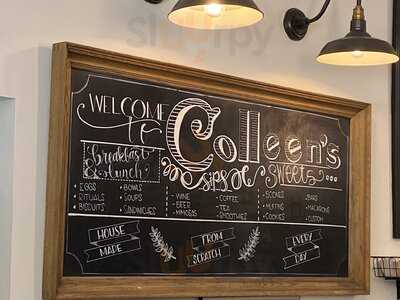 WELCOME
to
Colleen's
Breakfast
& Lunch
sips & sweets...
• EGGS
RITUALS
BISCUITS
• BOWLS
• SOUPS
• SANDWICHES
• WINE
• BEER
• MIMOSAS
• COFFEE
• TEA
• SMOOTHIES
• SCONES
• MUFFINS
• COOKIES
• BARS
• MACARONS
• CUSTOM
HOUSE
MADE
FROM
SCRATCH
EVERY
DAY